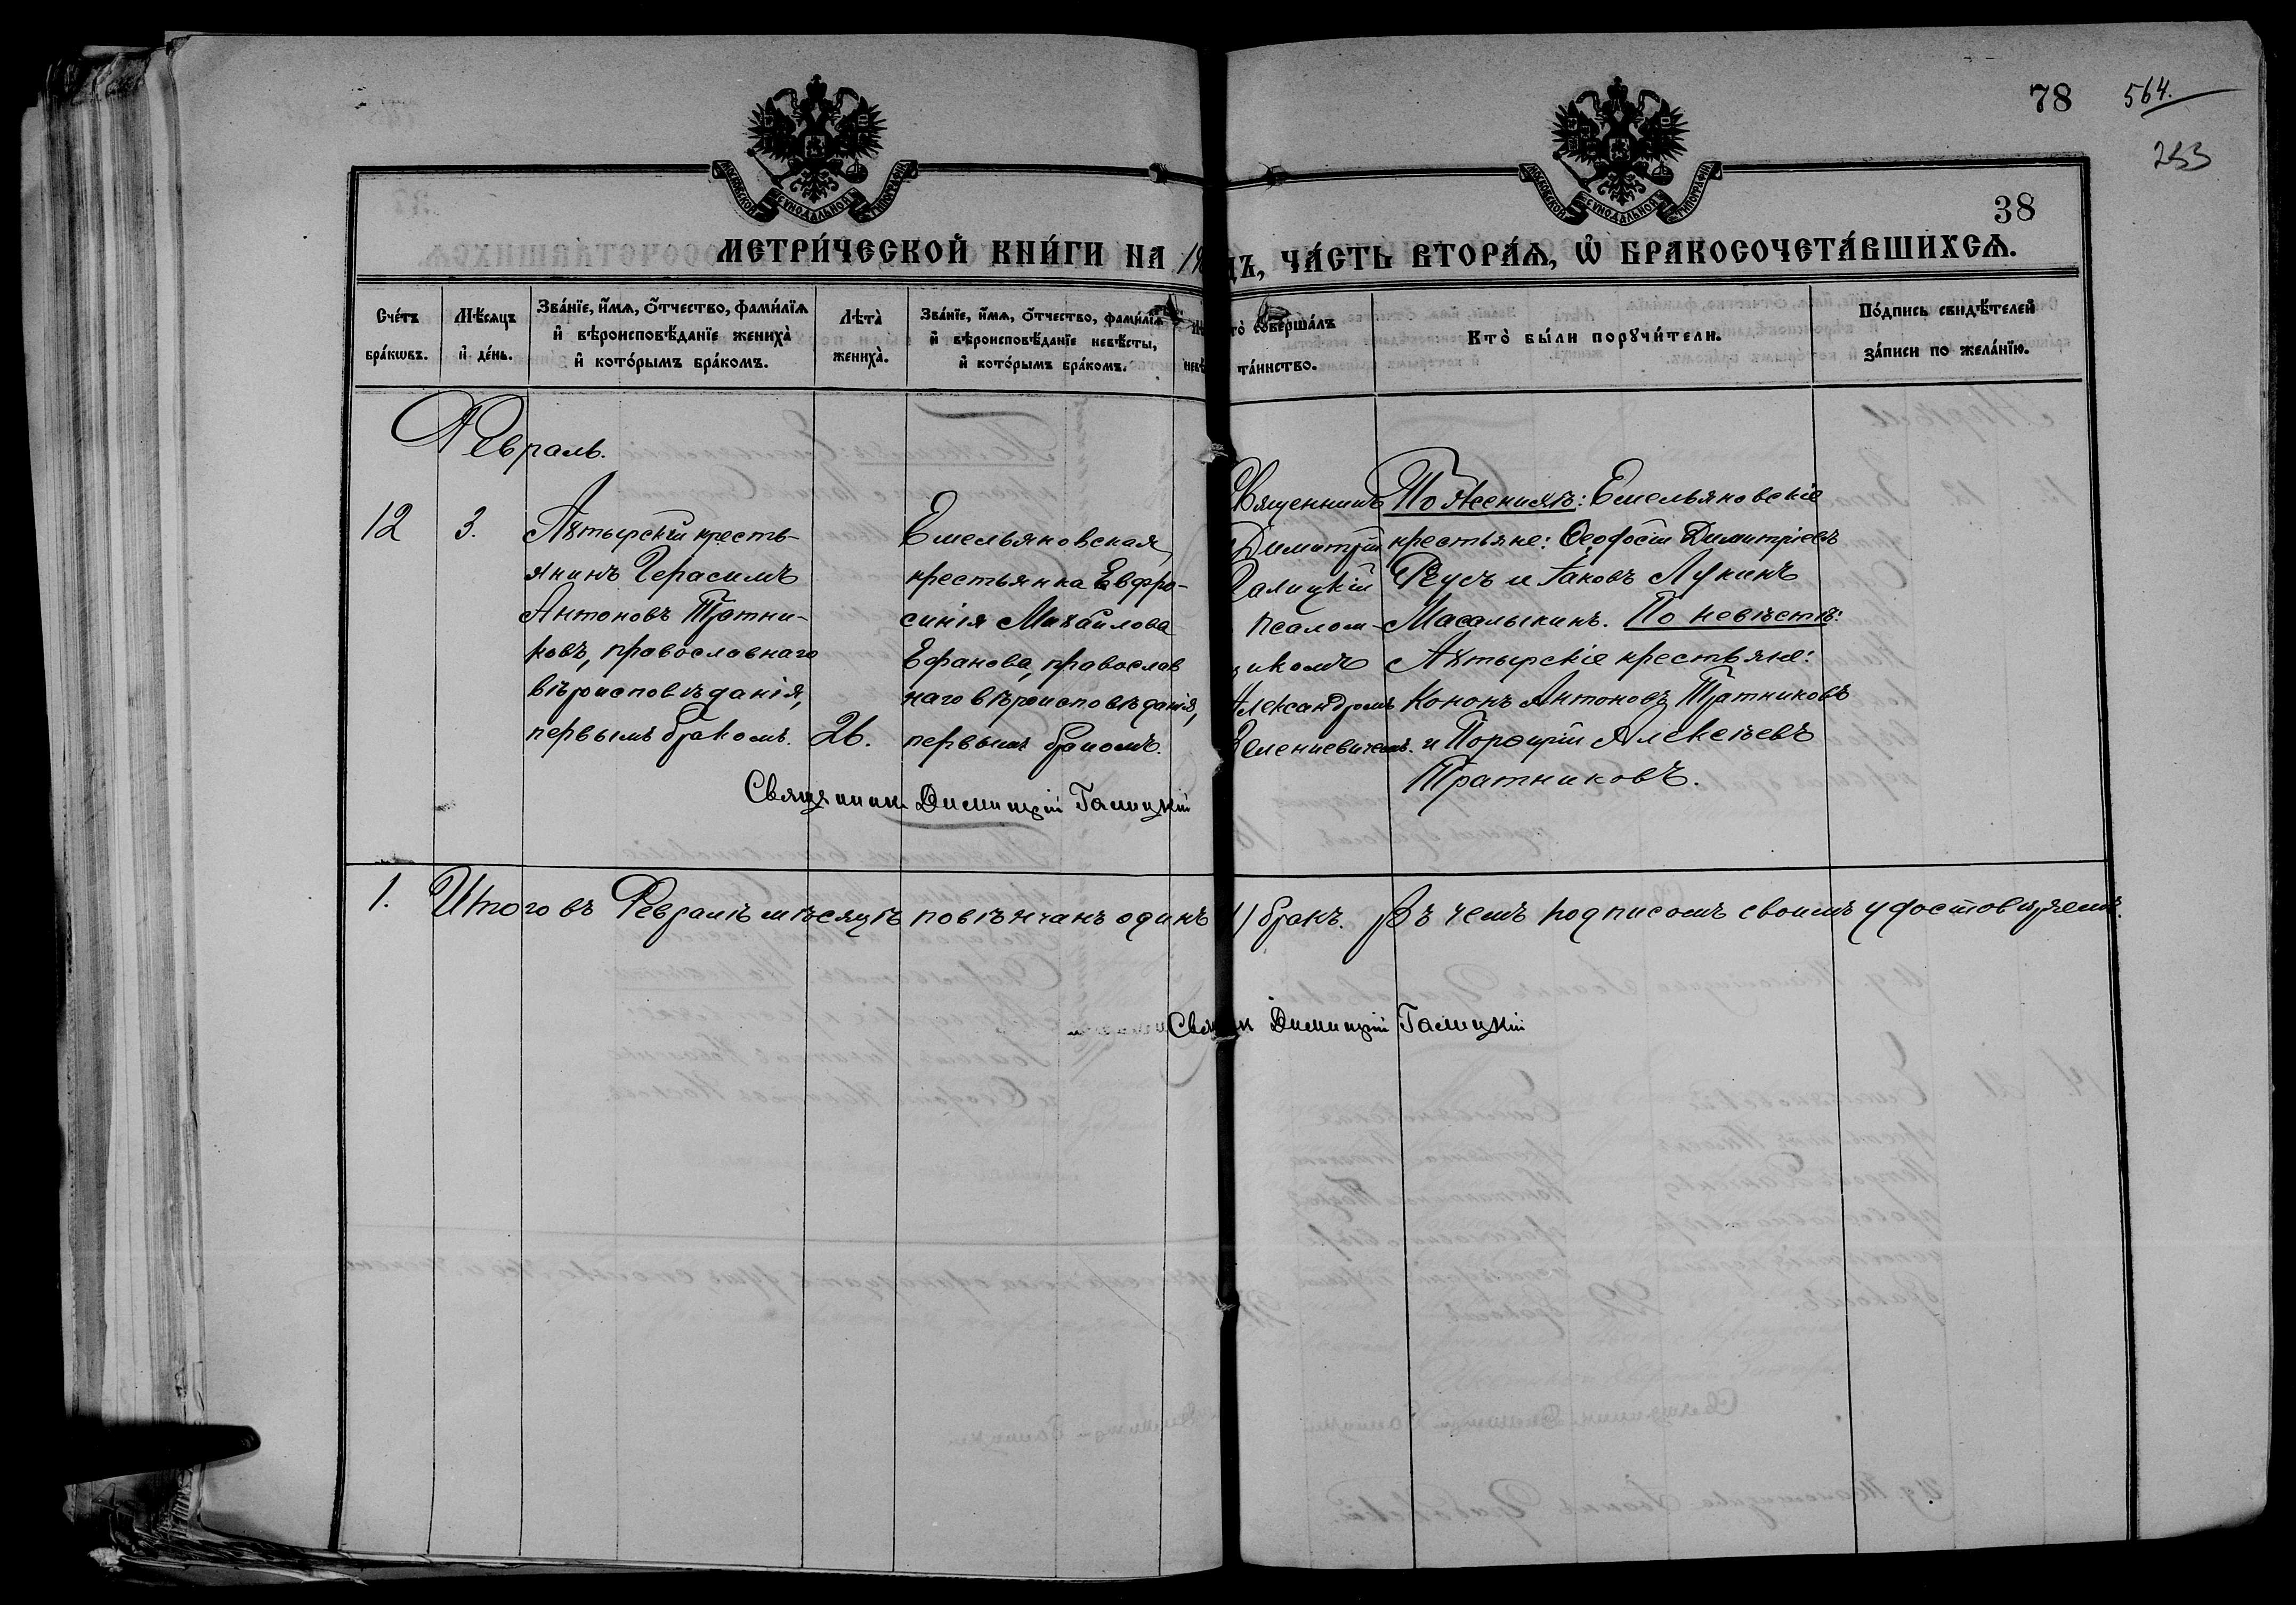 78 564.
253
38
МОСКОВСКОЙ СѴНОДАЛЬНОЙ ТИПОГРАФІИ
МОСКОВСКОЙ СѴНОДАЛЬНОЙ ТИПОГРАФІИ
МЕТРИ́ЧЕСКОЙ КНИ́ГИ НА 19
ДЪ, ЧА́СТЬ ВТОРА́Ѧ, Ѿ БРАКОСОЧЕТА́ВШИХСѦ.
Сче́тъ
бра́кѡвъ.
Мѣ́сяцъ
и҆ де́нь.
Зва́нїе, и҆́мѧ, ѻ҆́тчество, фами́лїѧ
и҆ вѣроисповѣ́данїе жениха̀
и҆ кото́рымъ бра́комъ.
Лѣта̀
жениха̀.
Зва́нїе, и҆́мѧ, ѻ҆́тчество, фами́лїѧ
и҆ вѣроисповѣ́данїе невѣ́сты,
и҆ кото́рымъ бра́комъ.
то̀ соверша́лъ
та́инство.
Кто̀ бы́ли порꙋчи́тели.
По́дпись свидѣ́телей
за́писи по жела́нїю.
Февраль.
12
3.
Ахтырскій кресть-
янинъ Герасимъ
Антоновъ Тратни-
ковъ, православнаго
вѣроисповѣданія,
первымъ бракомъ.
26.
Емельяновская
крестьянка Евфро-
синія Михаилова
Ефанова, православ
наго вѣроисповѣданія,
первымъ бракомъ.
Священникъ
Димитрій
Галицкій
псалом-
щикомъ
Александромъ
Зеленевичемъ.
По женихѣ: Емельяновскіе
крестьяне: Ѳеофостъ Димитріевъ
Реусъ и Іаковъ Лукинъ
Масалыкинъ. По невѣстѣ:
Ахтырскіе крестьяне:
Кононъ Антоновъ Тратниковъ
и Порфирій Алексѣевъ
Тратниковъ.
Священникъ Димитрій Галицкій
1. Итого въ Февралѣ мѣсяцѣ повѣнчанъ одинъ 1) бракъ. Въ чемъ подписомъ своимъ удостовѣряемъ.
Священник Димитрій Галицкій